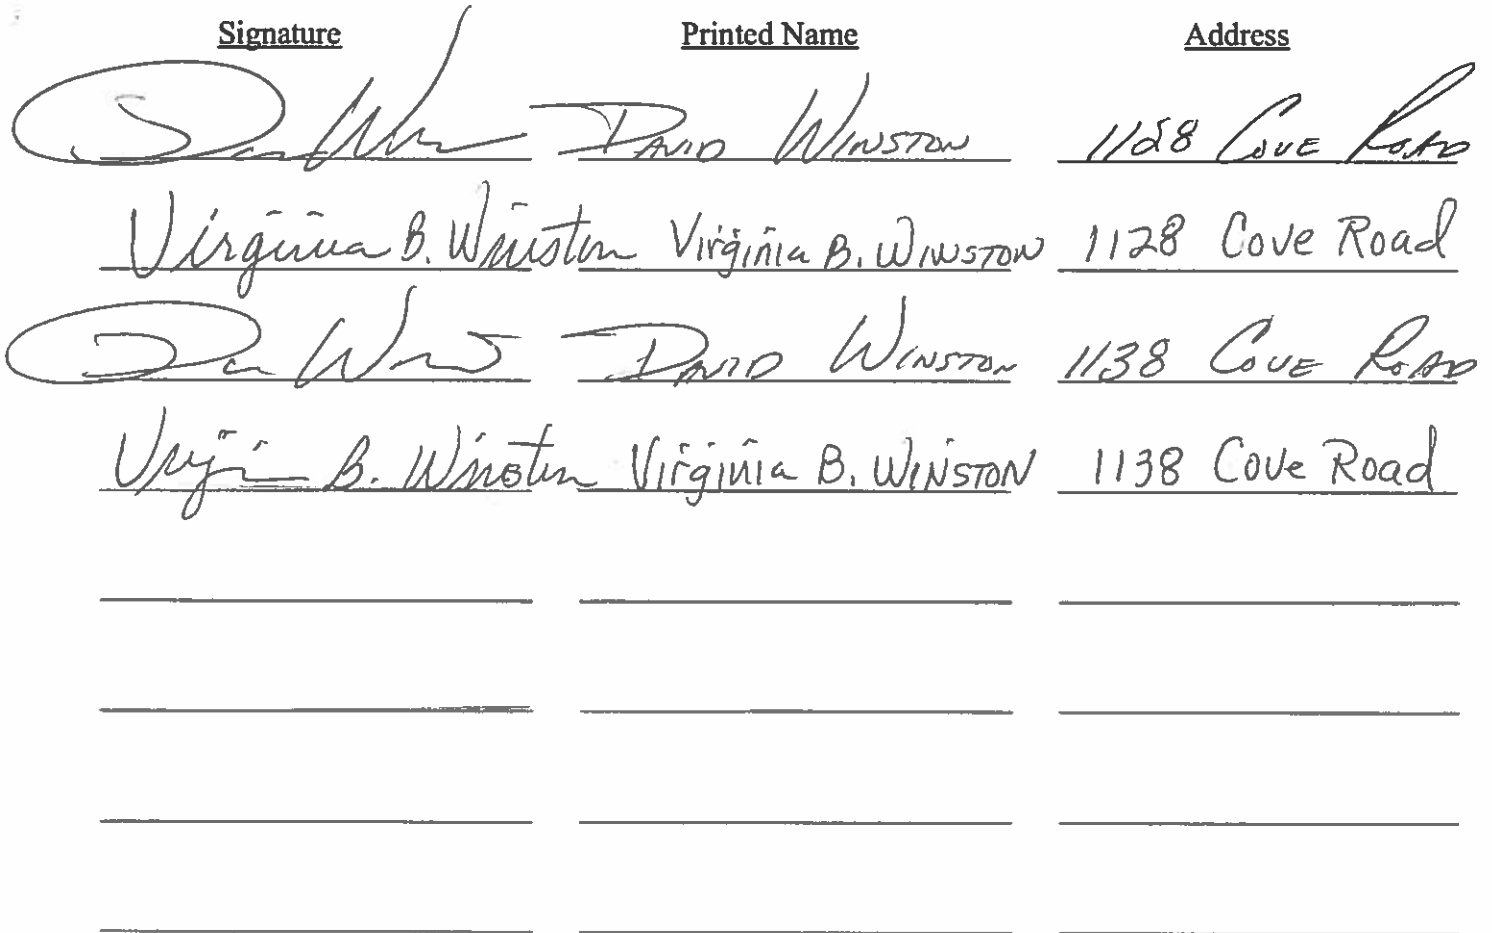 Signature Printed Name Address
David Winston 1128 Cove Road
Virginia B. Winston Virginia B. Winston 1128 Cove Road
David Winston 1138 Cove Road
B. Winston Virginia B. Winston 1138 Cove Road